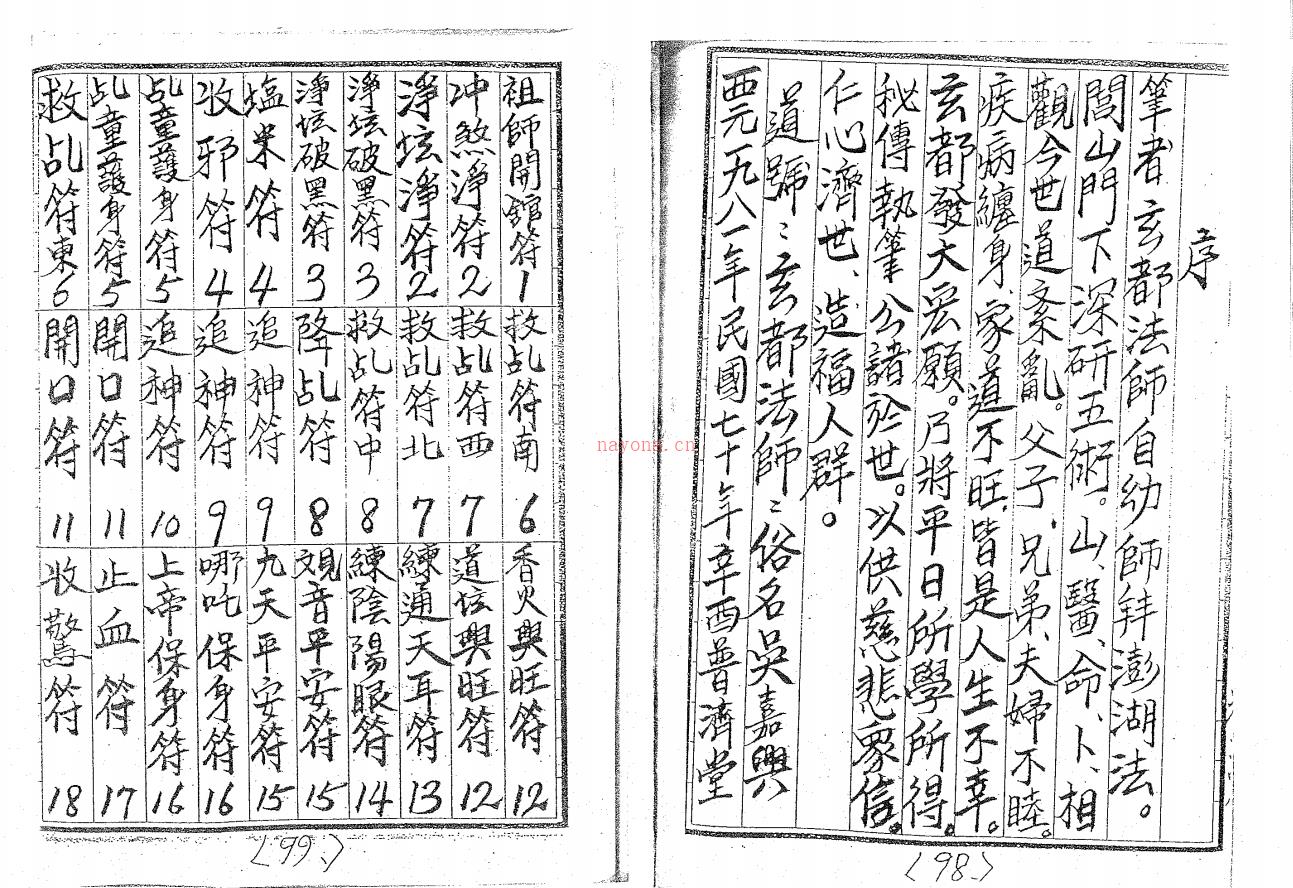 序
筆者玄都法師自幼師拜澎湖法。
閭山門下深研五術。山、醫、命、卜、相
觀今世道紊亂。父子、兄弟、夫婦不睦。
疾病纏身、家道不旺、皆是人生不幸。
玄都發大宏願。乃將平日所學所得。
秘傳執筆公諸於世。以供慈悲眾信。
仁心濟世、造福人群。
道號：玄都法師：俗名吳嘉興
西元一九八一年民國七十年辛酉普濟堂
<98.>
祖師開館符1
冲煞淨符2
淨坛淨符2
淨坛破黑符3
淨坛破黑符3
塩米符4
收邪符4
乩童護身符5
乩童護身符5
救乩符東6
救乩符南6
救乩符西7
救乩符北7
救乩符中8
降乩符8
追神符9
追神符9
追神符10
開口符11
開口符11
香火興旺符12
道坛興旺符12
練通天耳符13
練陰陽眼符14
观音平安符15
九天平安符15
哪吒保身符16
上帝保身符16
止血符17
收驚符18
<99.>
nayona.cn